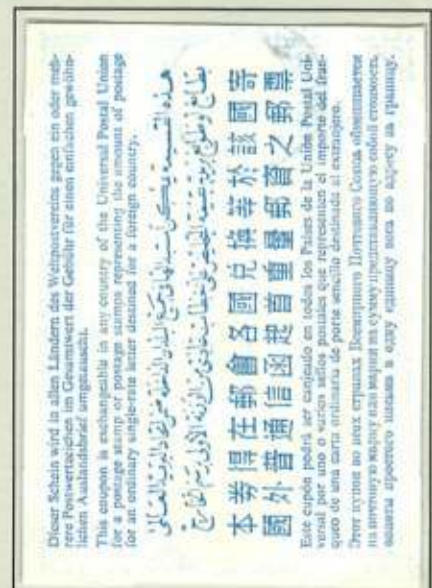 Dieser Schein wird in allen Ländern des Weltpostvereins gegen ein oder meh-
rere Postwertzeichen im Gesamtwert der Gebühr für einen einfachen gewöhn-
lichen Auslandsbrief umgetauscht.
This coupon is exchangeable in any country of the Universal Postal Union
for a postage stamp or postage stamps representing the amount of postage
for an ordinary single-rate letter destined for a foreign country.
هذه القسيمة يمكن استبدالها في جميع البلاد
بطابع أو طوابع بريد
本券得在郵會各國兌換等於該國寄
國外普通信函起首重量郵資之郵票
Este cupón podrá ser canjeado en todos los Países de la Unión Postal Uni-
versal por uno o varios sellos postales que representen el importe del fran-
queo de una carta ordinaria de porte sencillo destinada al extranjero.
Этот купон во всех странах Всемирного Почтового Союза обменивается
на почтовую марку или марки на сумму, представляющую собой стоимость
оплаты простого письма в одну единицу веса по адресу за границу.